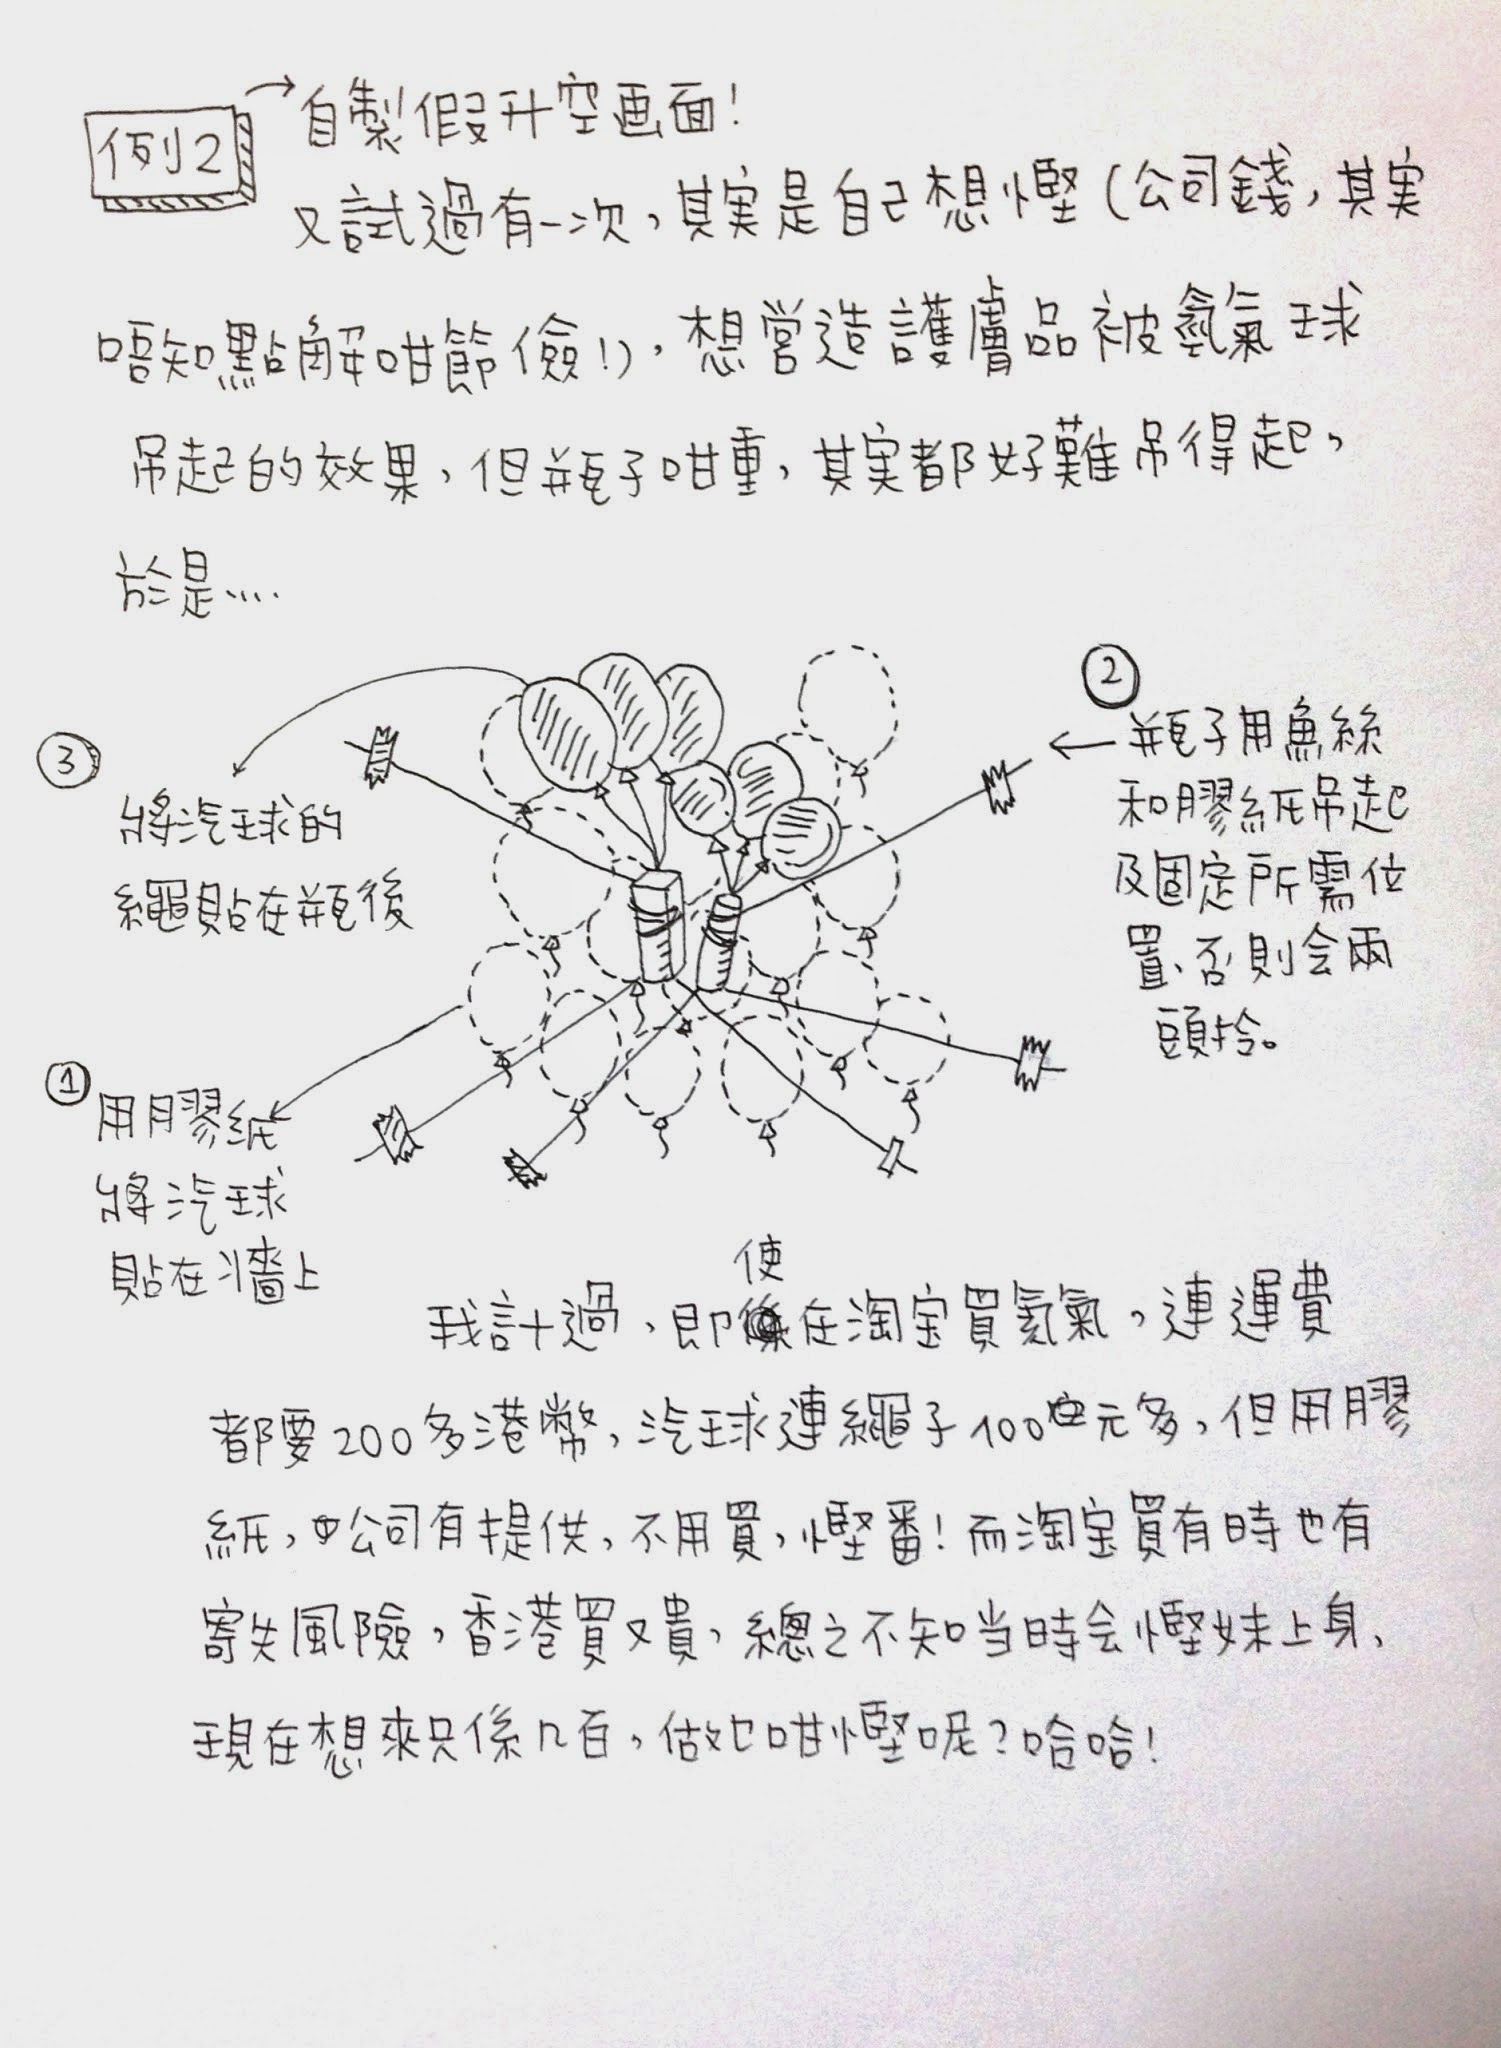 例2
自製假升空画面！
又試過有一次，其実是自己想慳（公司錢，其実
唔知點解咁節儉！），想營造護膚品被氫氣球
吊起的效果，但瓶子咁重，其実都好難吊得起，
於是....
③
將汽球的
繩貼在瓶後
②
瓶子用魚絲
和膠紙吊起
及固定所需位
置、否則会兩
頭拎。
①
用膠紙
將汽球
貼在牆上
我計過，即使在淘宝買氦氣，連運費
都要200多港幣，汽球連繩子100元多，但用膠
紙，公司有提供，不用買，慳番！而淘宝買有時也有
寄失風險，香港買又貴，總之不知当時会慳妹上身、
現在想來只係几百，做乜咁慳呢？哈哈！